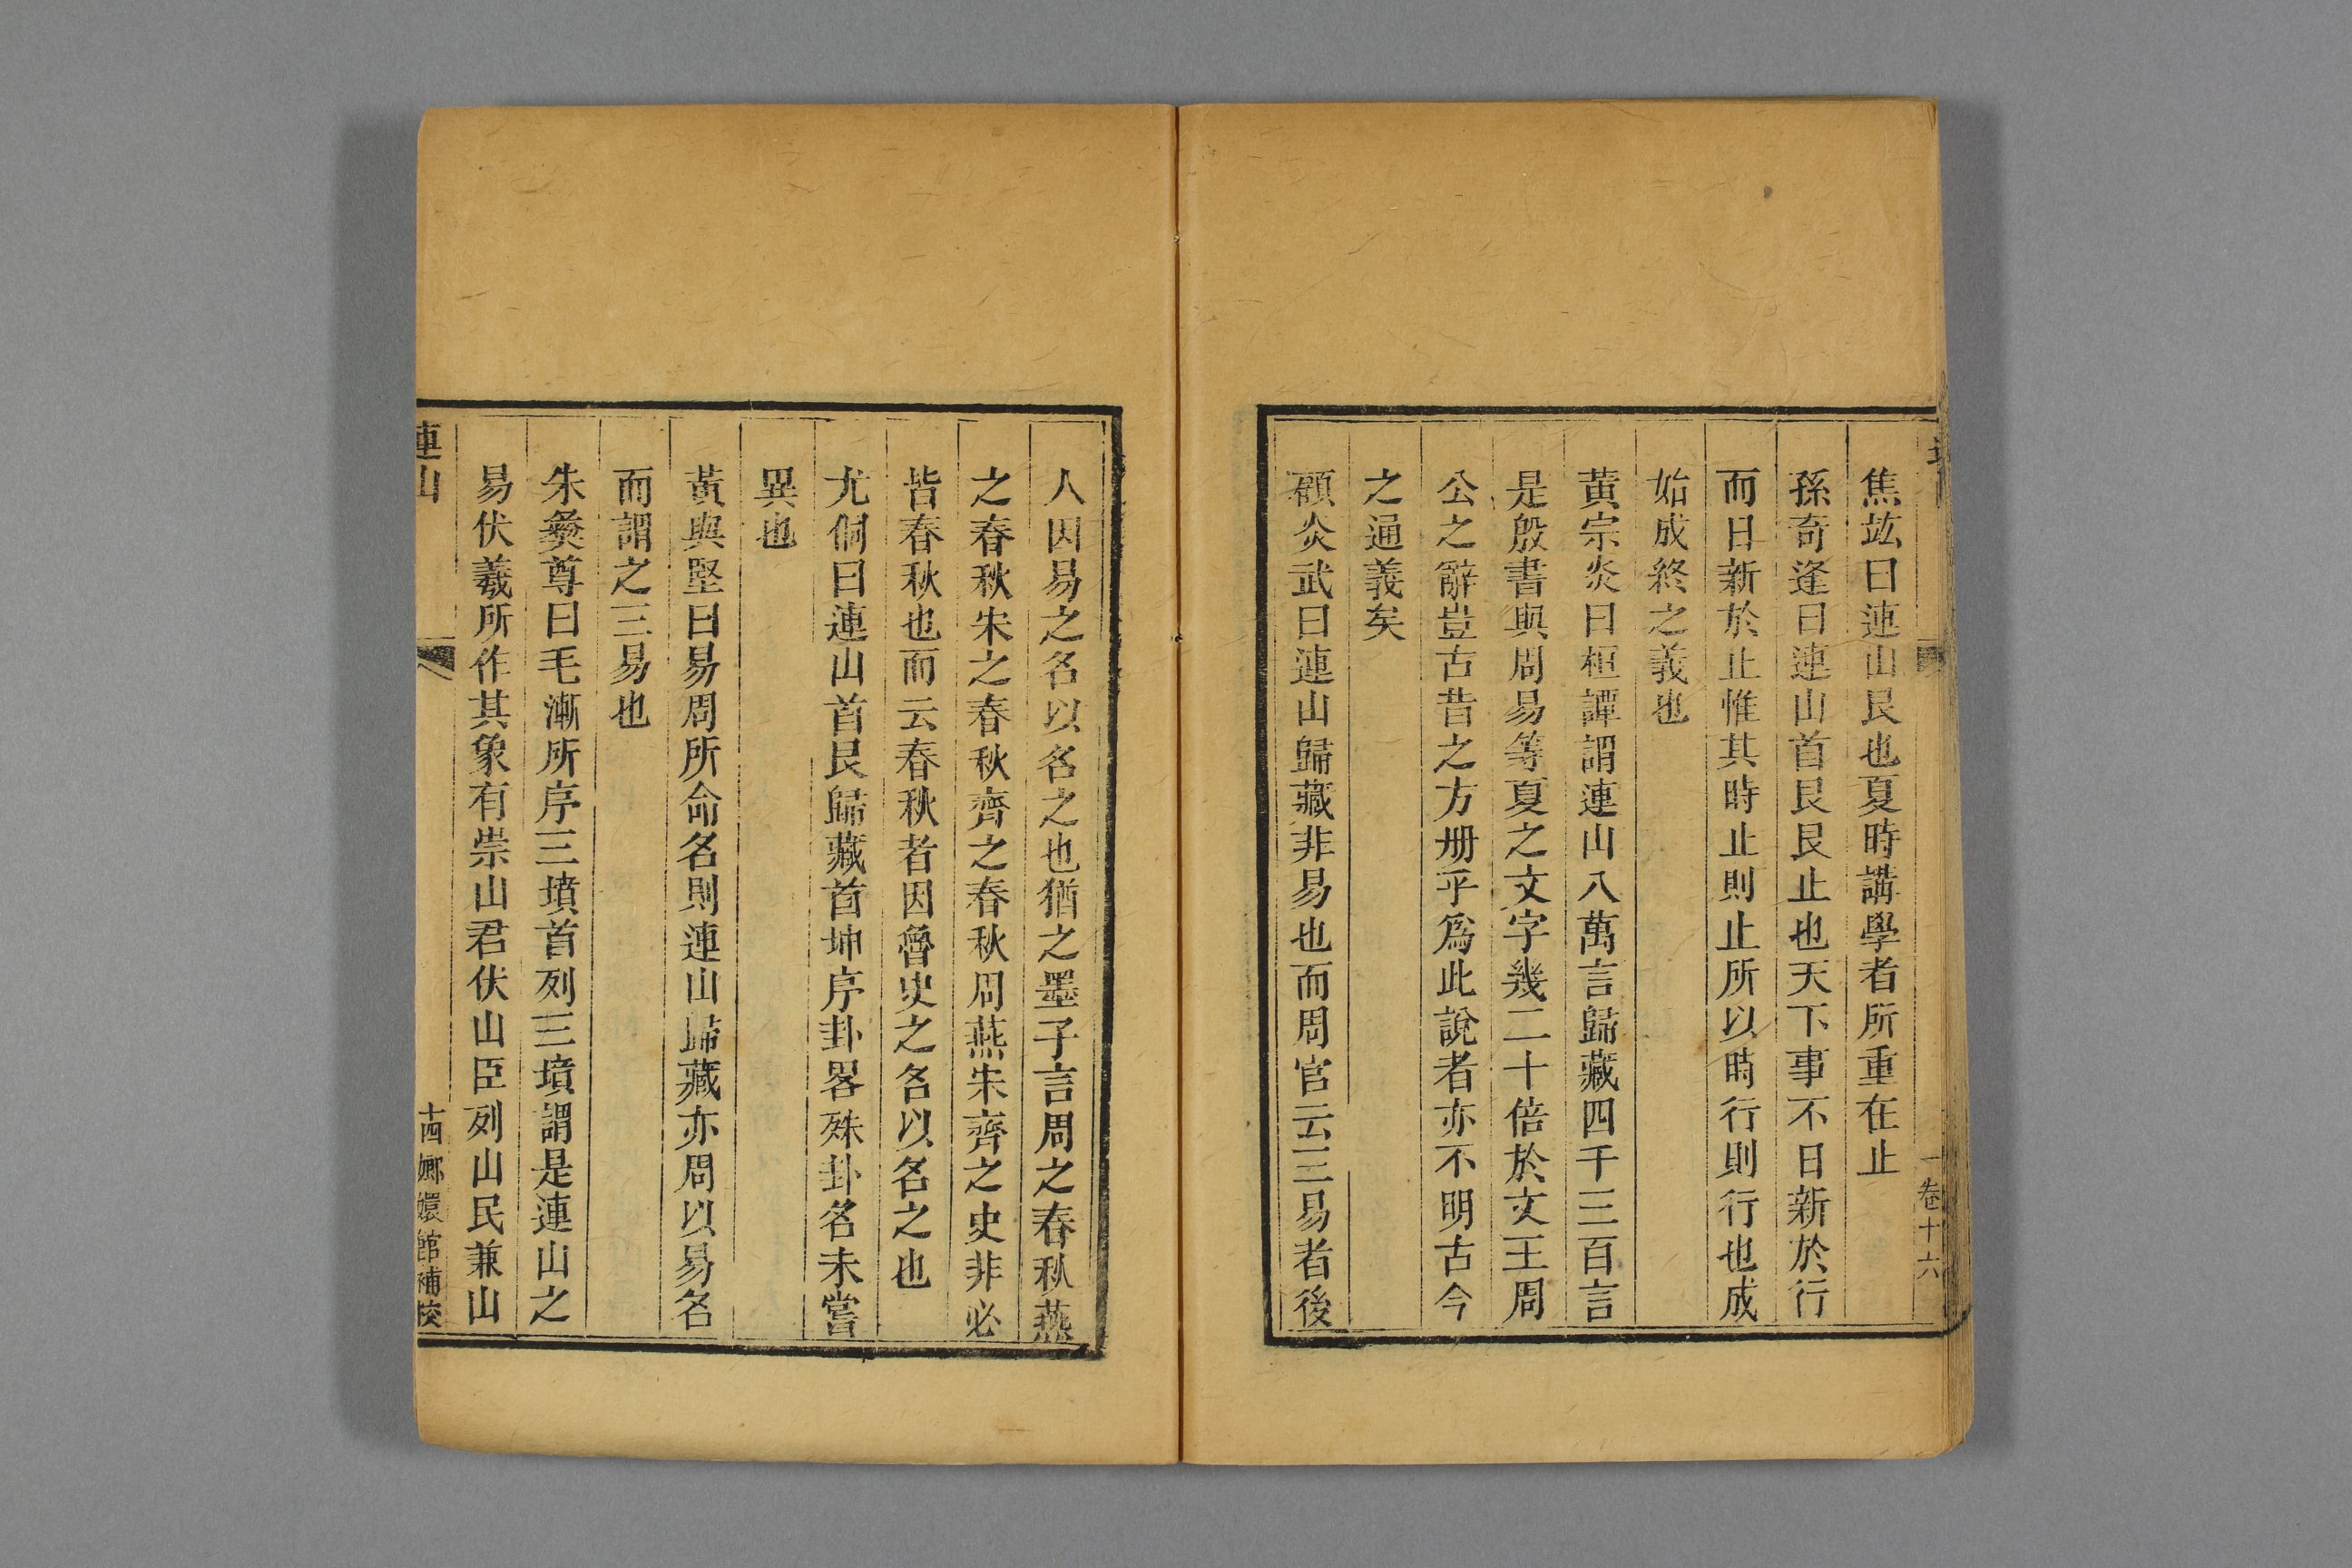 卷十六
焦竑曰連山艮也夏時講學者所重在止
孫奇逢曰連山首艮艮止也天下事不日新於行
而日新於止惟其時止則止所以時行則行也成
始成終之義也
黄宗炎曰桓譚謂連山八萬言歸藏四千三百言
是殷書與周易等夏之文字幾二十倍於文王周
公之辭豈古昔之方册乎爲此說者亦不明古今
之通義矣
顧炎武曰連山歸藏非易也而周官云三易者後
人因易之名以名之也猶之墨子言周之春秋燕
之春秋宋之春秋齊之春秋周燕宋齊之史非必
皆春秋也而云春秋者因魯史之名以名之也
尤侗曰連山首艮歸藏首坤序卦畧殊卦名未嘗
異也
黃與堅曰易周所命名則連山歸藏亦周以易名
而謂之三易也
朱彜尊曰毛漸所序三墳首列三墳謂是連山之
易伏羲所作其象有崇山君伏山臣列山民兼山
連山
十四
嫏嬛館補校